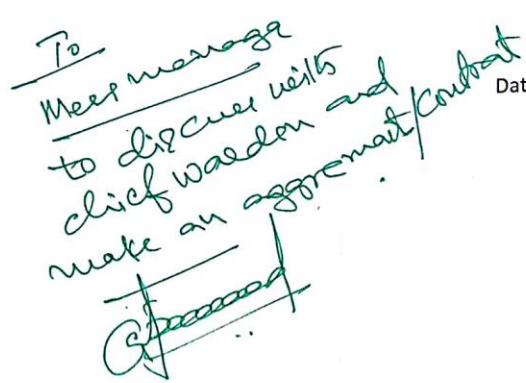 To
Mess manager
to discuss with
chief warden and
make an aggrement/contrat
Dat